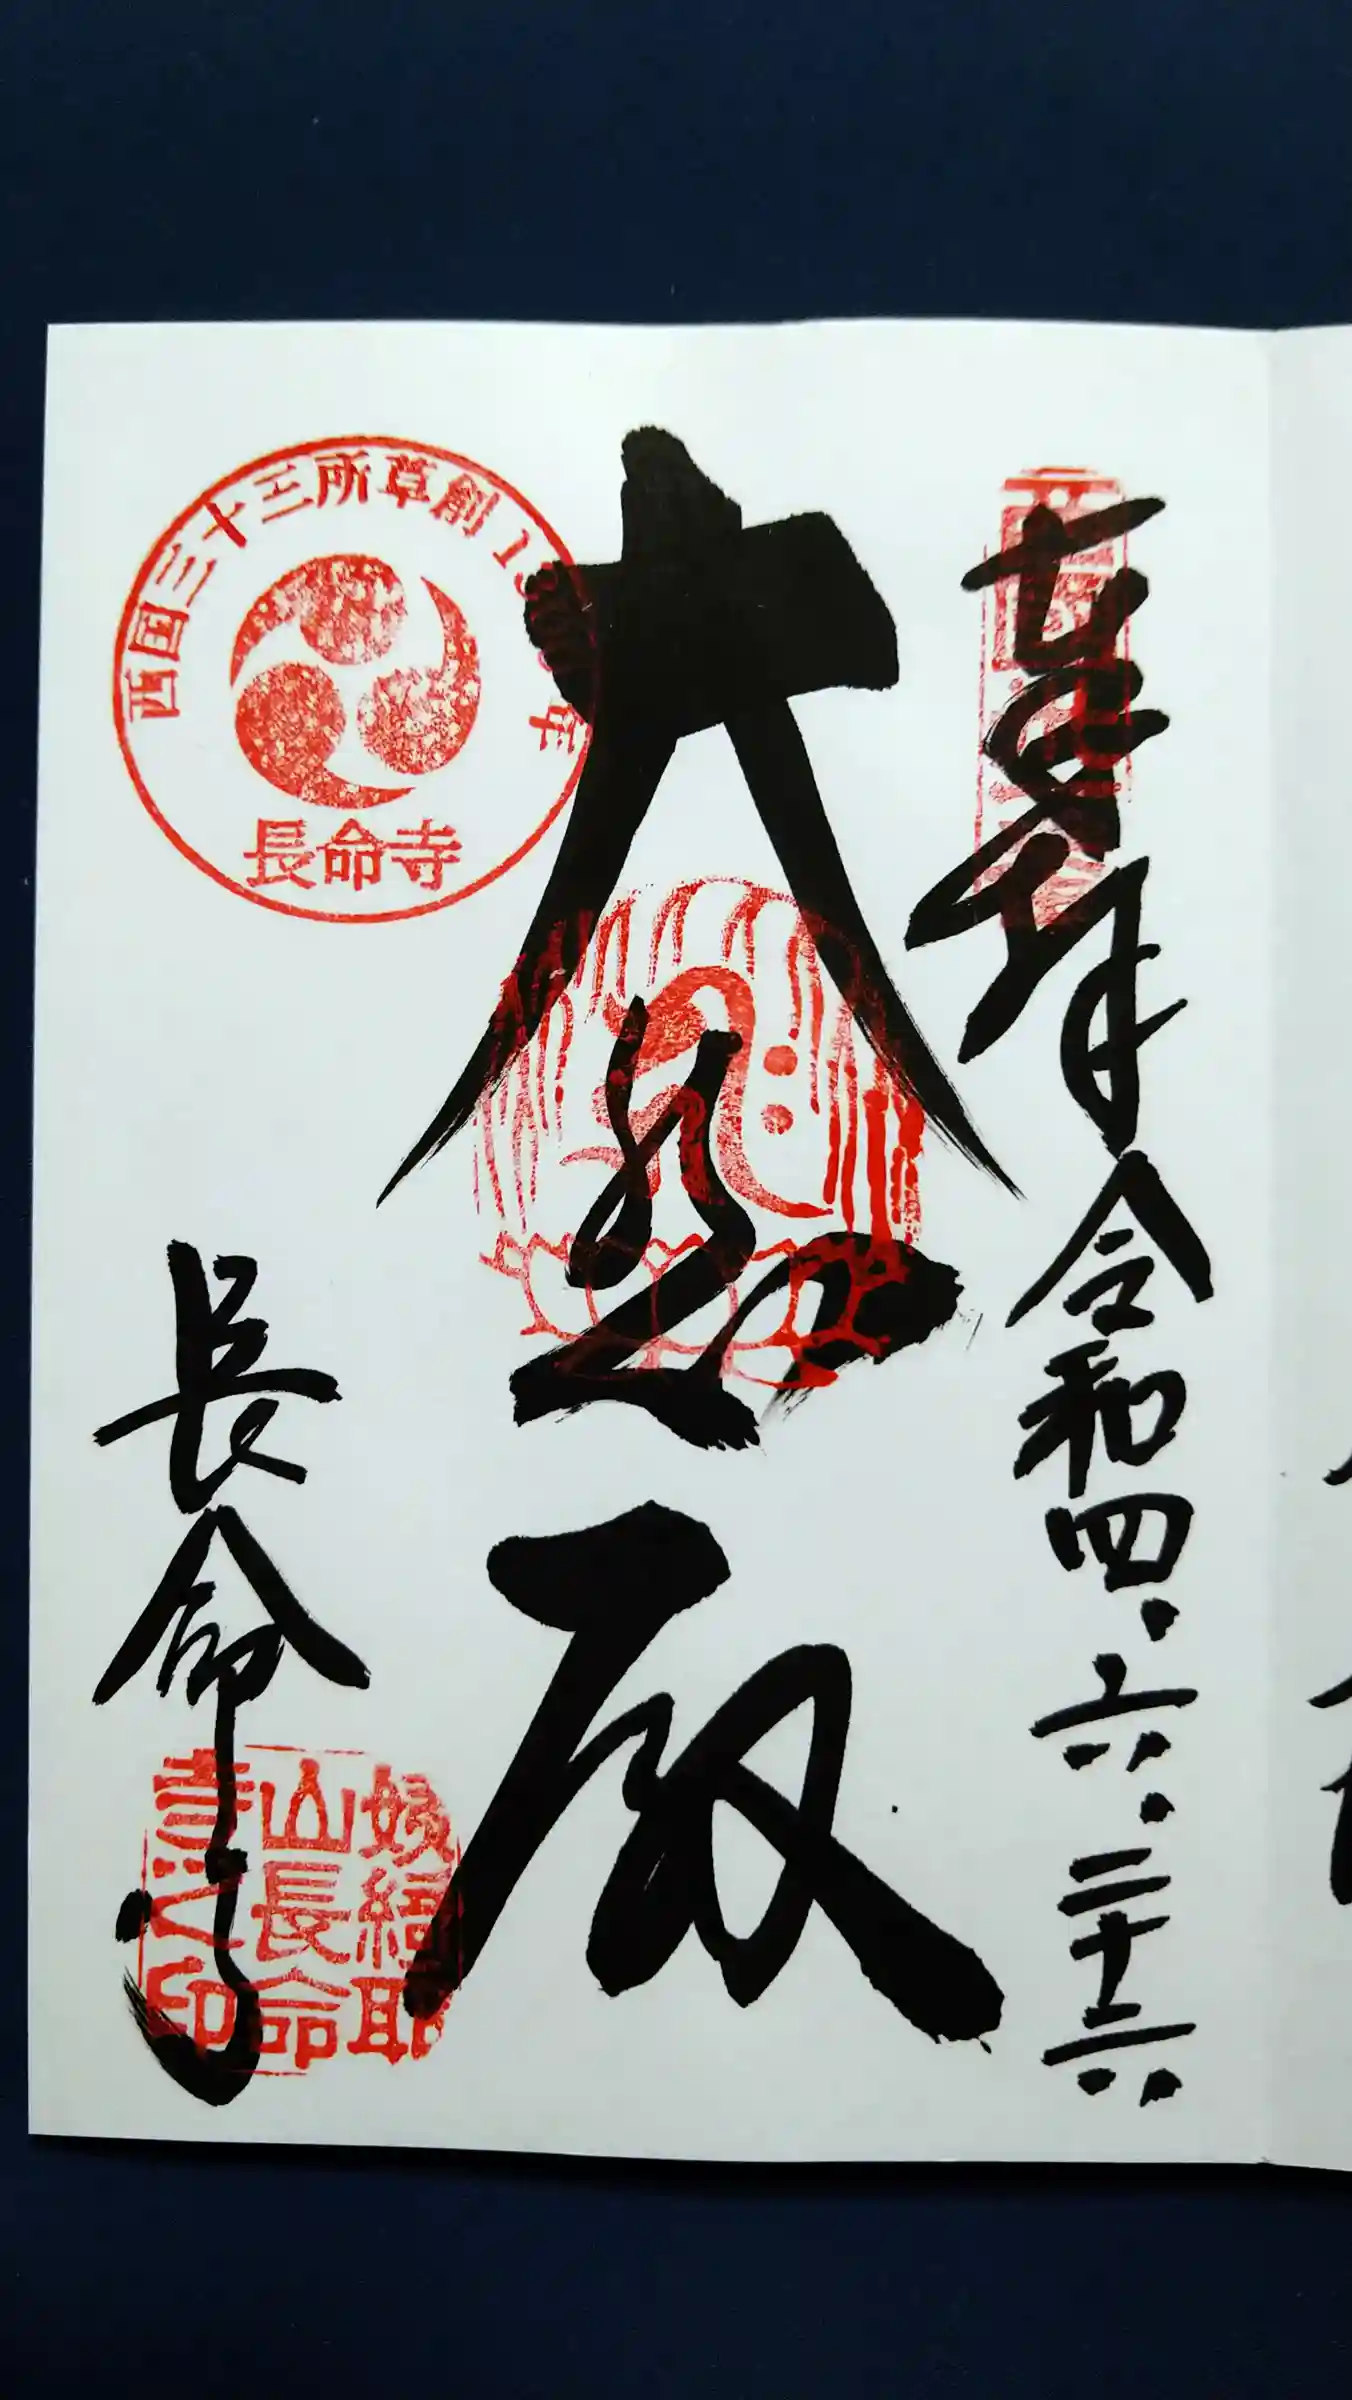 奉拝 令和四・六・二十六
大悲殿
長命寺
西国三十三所草創1300年
長命寺
姨綺耶
山長命
寺之印